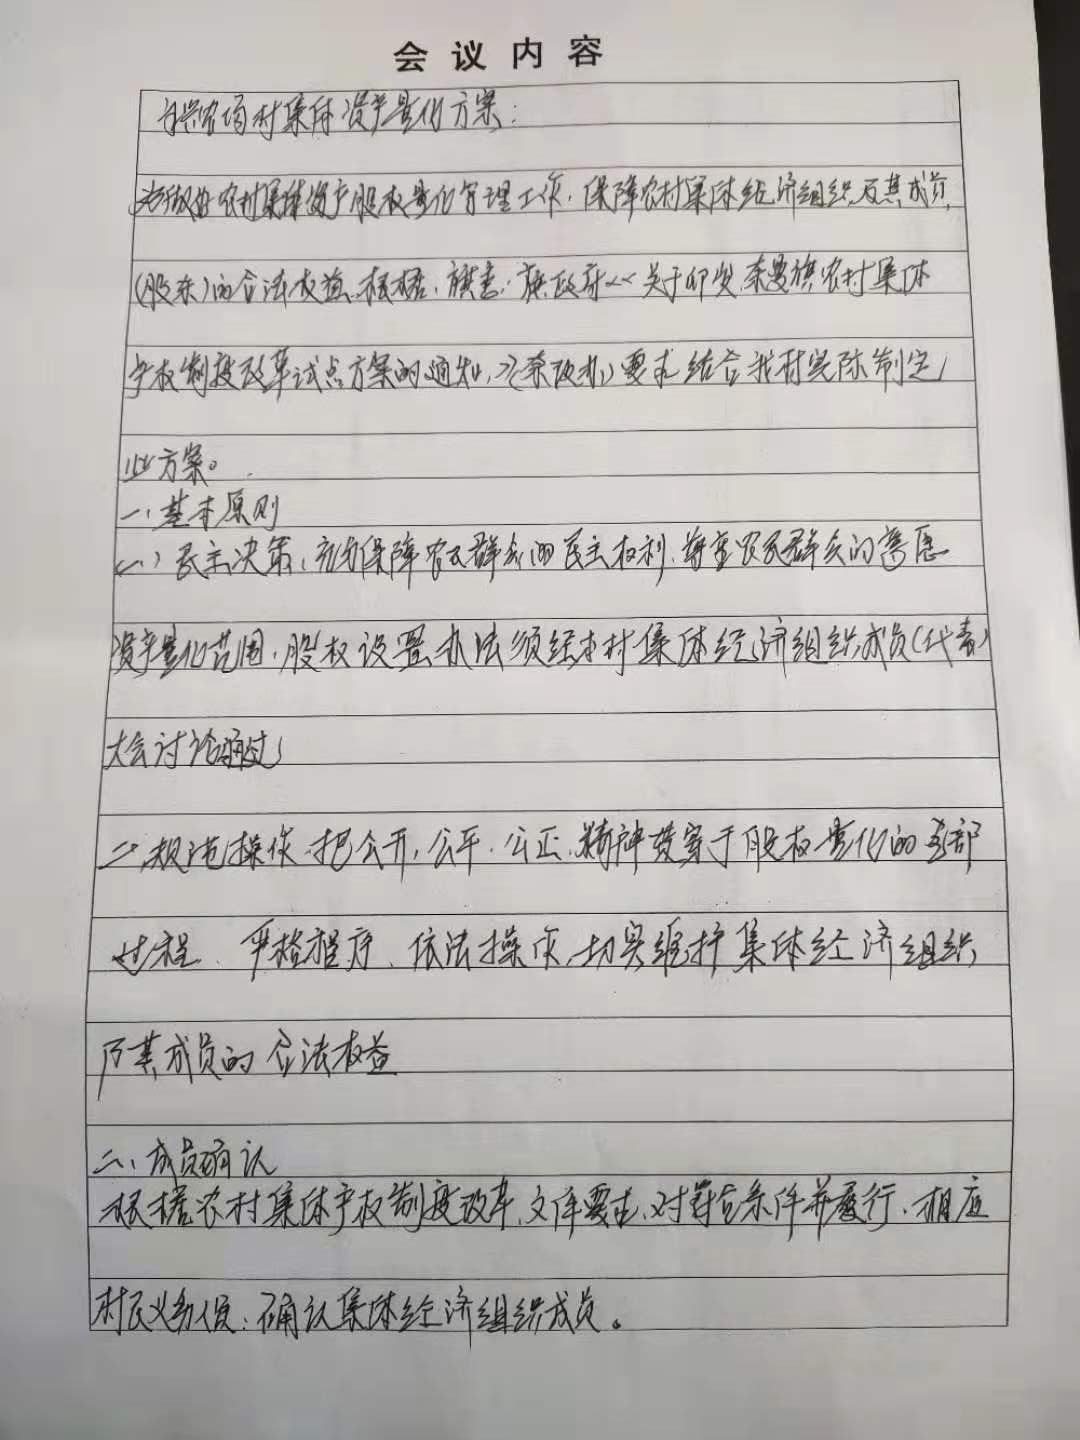 会议内容
兴农场村集体资产量化方案：
为做好农村集体资产股权量化管理工作，保障农村集体经济组织及其成员
（股东）的合法权益、根据、旗委、旗政府《关于印发奈曼旗农村集体
产权制度改革试点方案的通知》（奈改办）要求结合我村实际制定
此方案。
一、基本原则
（一）民主决策，充分保障农民群众的民主权利，尊重农民群众的意愿
资产量化范围，股权设置办法须经本村集体经济组织成员（代表）
大会讨论通过
二规范操作 把公开，公平，公正，精神贯穿于股权量化的全部
过程、严格程序、依法操作，切实维护集体经济组织
及其成员的合法权益
二、成员确认
根据农村集体产权制度改革，文件要求，对符合条件并履行，相应
村民义务人员：确认集体经济组织成员。